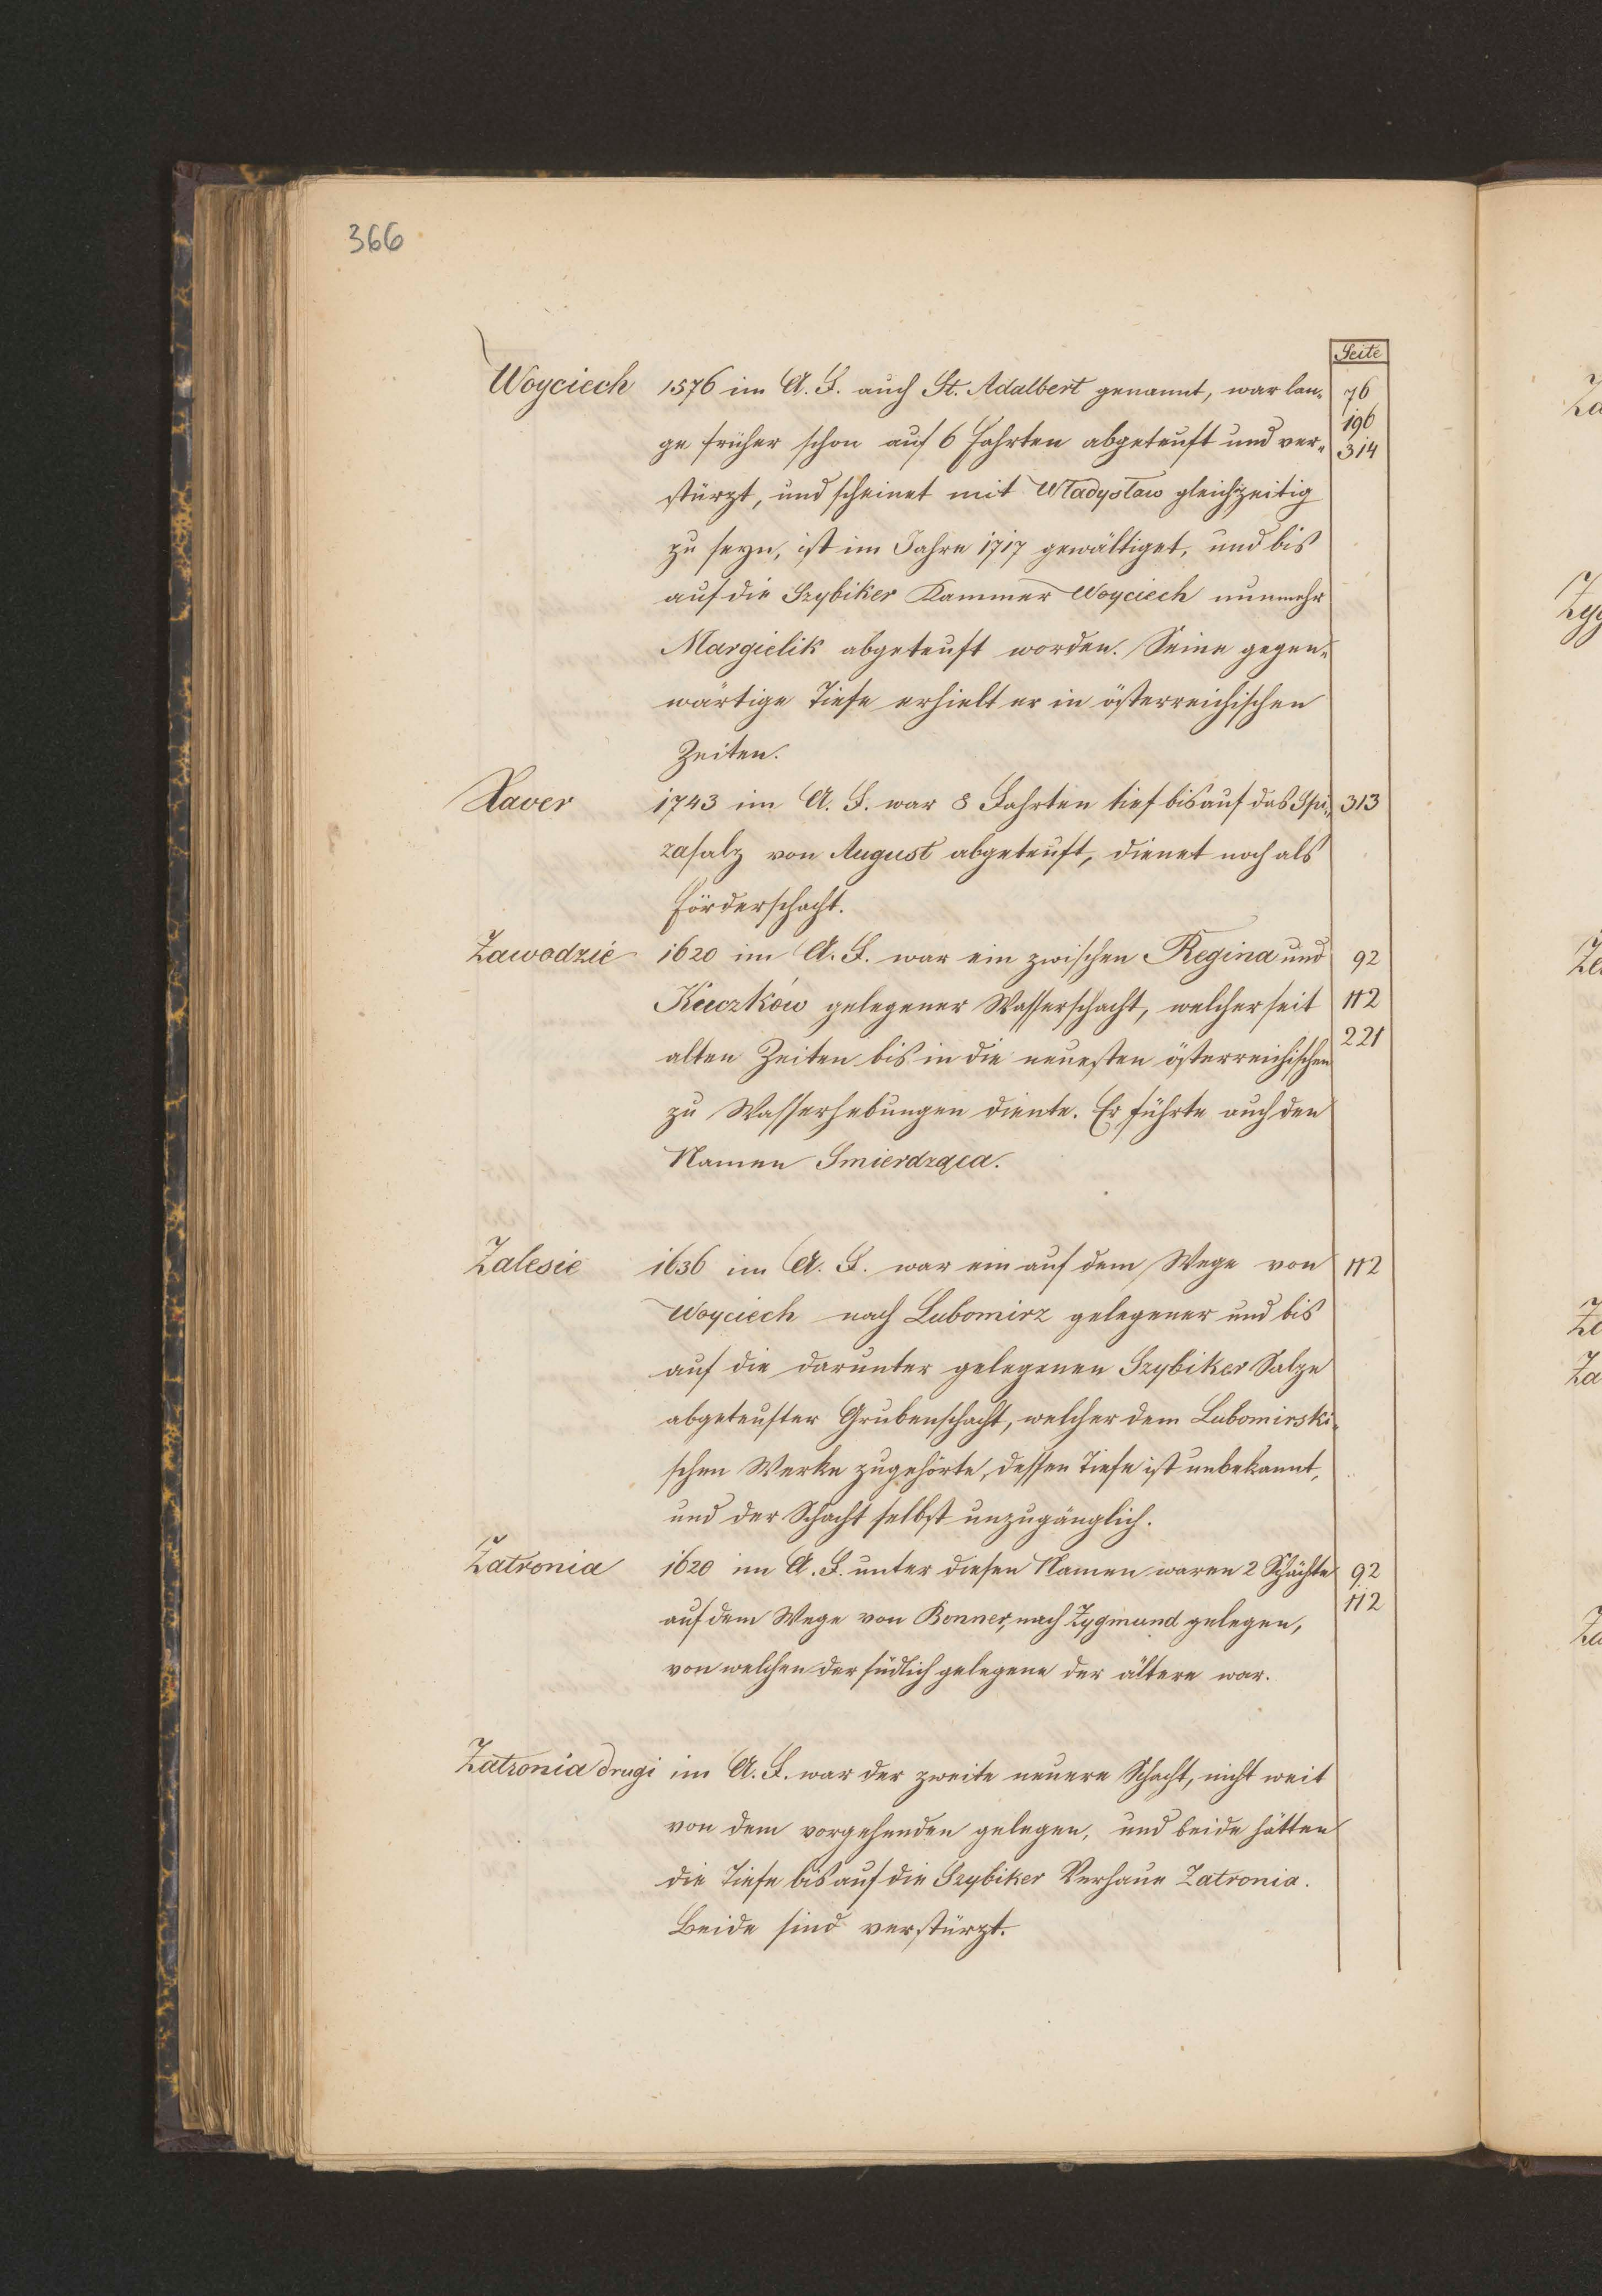 366
Seite
Woyciech 1576 im A. F. auch St. Adalbert genannt, war lan- 76
196
ge früher schon auf 6 Fahrten abgeteuft und ver- 314
stürzt, und scheinet mit Władysław gleichzeitig
zu seyn, ist im Jahre 1717 gewältiget, und bis
auf die Szybiker Kammer Woyciech nunmehr
Margielik abgeteuft worden. Seine gegen-
wärtige Tiefe erhielt er in österreichischen
Zeiten.
Xaver 1743 im A. F. war 8 Fahrten tief bis auf das Spi- 313
zasalz von August abgeteuft, dienet noch als
Förderschacht.
Zawodzie 1620 im A. F. war ein zwischen Regina und 92
Kuczków gelegener Wasserschacht, welcher seit 112
221
alten Zeiten bis in die neuesten österreichischen
zu Wasserhebungen diente. Er führte auch den
Namen Smierdząca.
Zalesie 1636 im A. F. war ein auf dem Wege von 112
Woyciech nach Lubomirz gelegener und bis
auf die darunter gelegenen Szybiker Salze
abgeteufter Grubenschacht, welcher dem Lubomirski-
schen Werke zugehörte, dessen Tiefe ist unbekannt,
und der Schacht selbst unzugänglich.
Zatronia 1620 im A. F. unter diesen Namen waren 2 Schächte 92
112
auf dem Wege von Bonner, nach Zygmund gelegen,
von welchen der südlich gelegene der ältere war.
Zatronia drugi im A. F. war der zweite neuere Schacht, nicht weit
von dem vorgehenden gelegen, und beide hätten
die Tiefe bis auf die Szybiker Verhaue Zatronia.
Beide sind verstürzt.